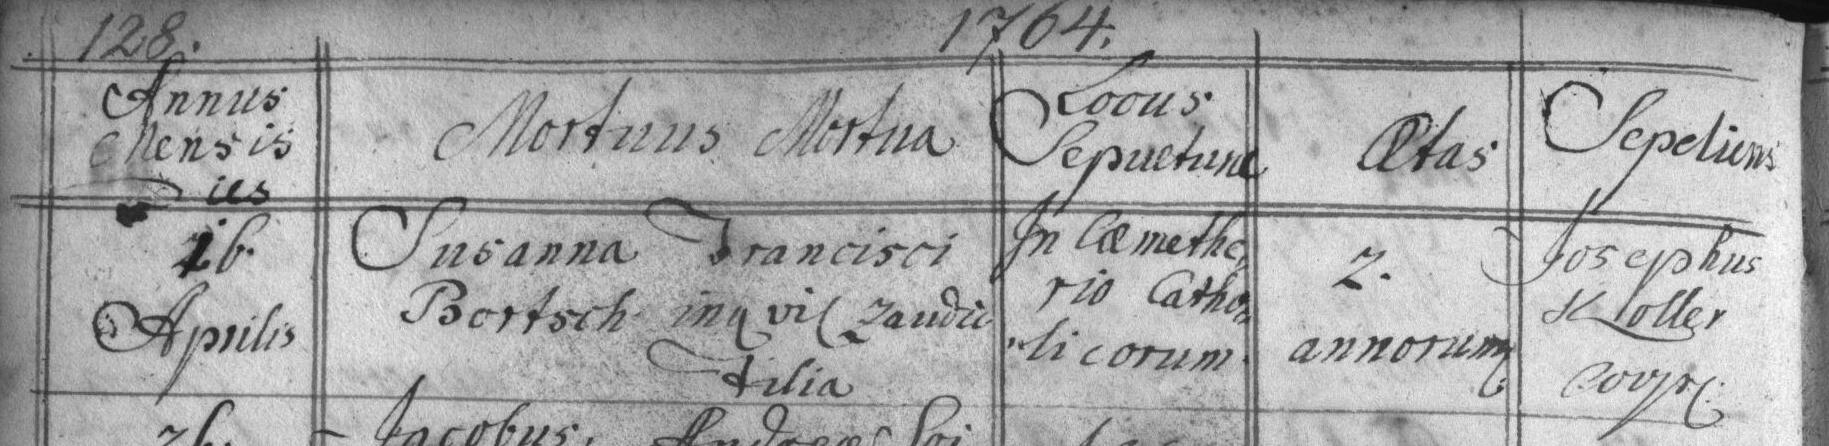 128. 1764.
Annus Mensis Dies
Mortuus Mortua
Locus Sepulturae
Ætas
Sepeliens
26. Aprilis
Susanna Francisci
Bortsch inqvil
Filia
In Cæmethe
rio Catho
licorum.
2.
annorum
Josephus
Koller
Jacobus. Andreæ